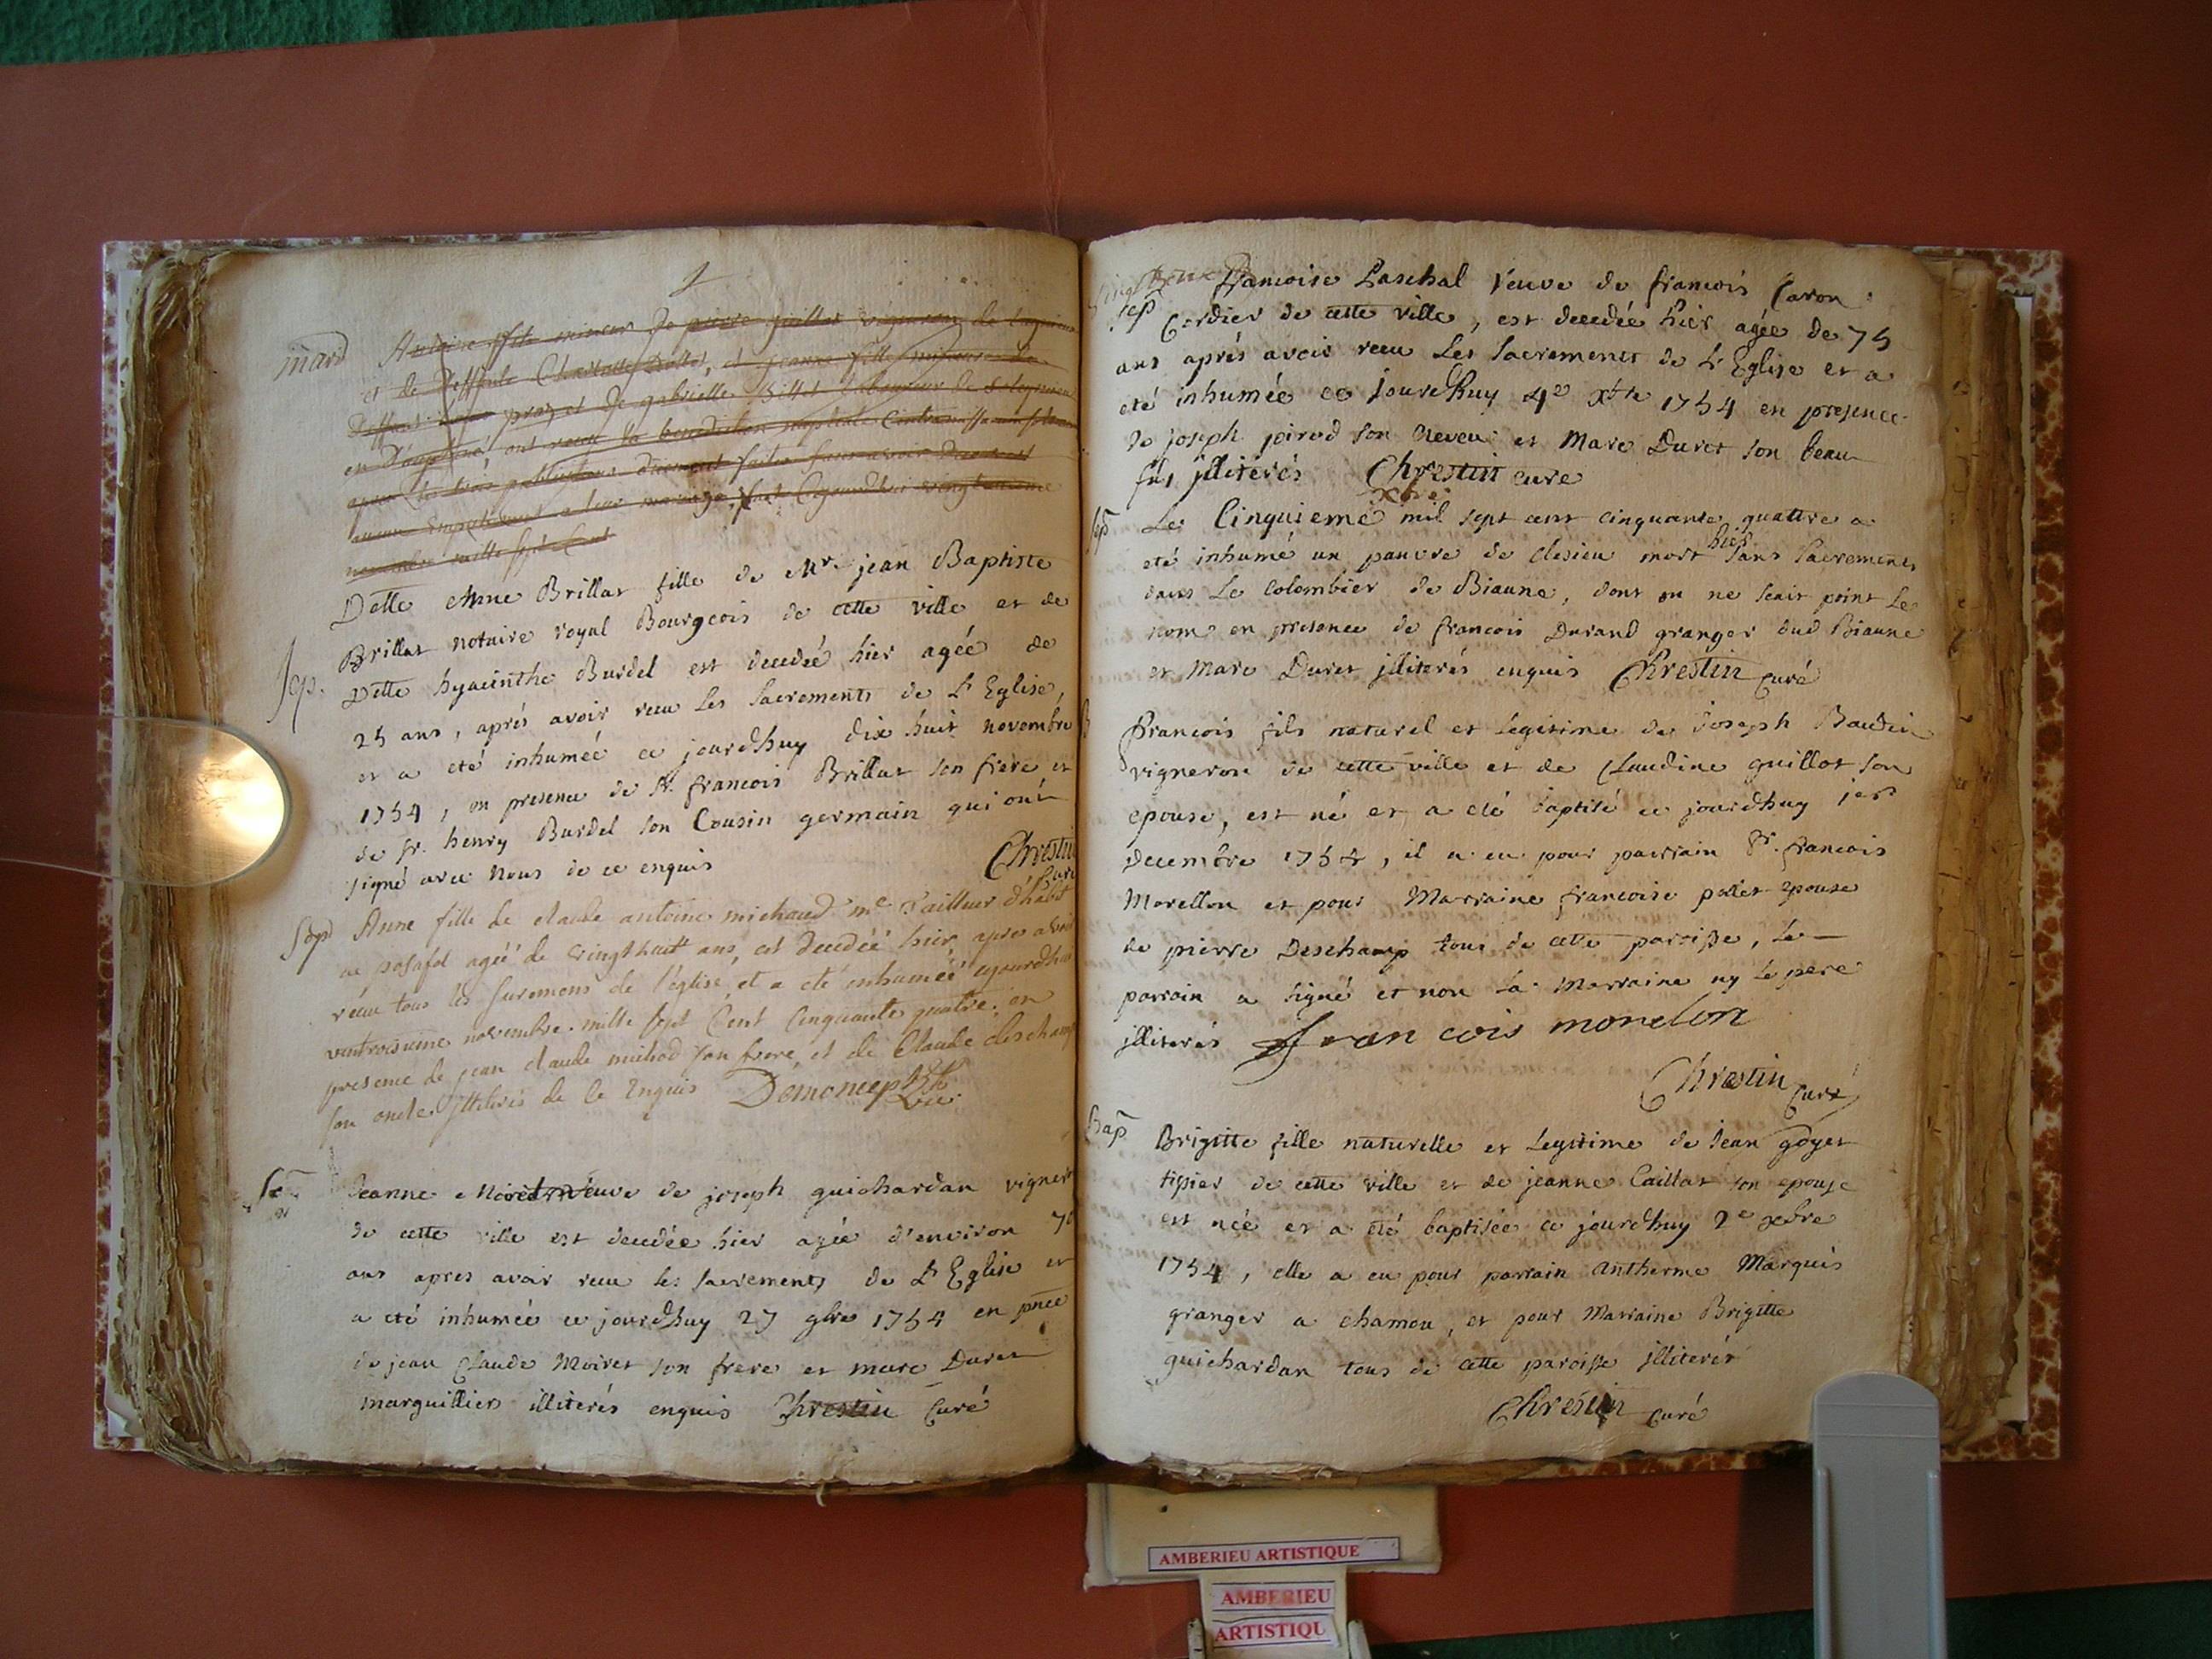 mard Antoine fils mineur de pierre guillot vigneron de
et de deffunte Charlotte Dollet, et jeanne fille mineure de
Deffunt proz et de gabrielle Billet laboureur de
en ont reçu la benediction nuptiale
apres les trois publications duement faites sans avoir
aucun Empechement a leur mariage, fait Cejourdhui vingtunieme
novembre mille sept Cent
Delle Anne Brillat fille de Mr. jean Baptiste
Sep. Brillat notaire royal Bourgeois de cette ville et de
Delle hyacinthe Burdel est decedeé hier agée de
25 ans, aprés avoir recu Les Sacrements de L'Eglise,
et a eté inhumeé ce jourdhuy dix huit novembre
1754, en presence de Sr. francois Brillat son frere et
de Sr. henry Burdel son Cousin germain qui ont
signé avec nous de ce enquis Chrestin
Curé
Sep Anne fille de claude antoine michaud me tailleur d'habit
au posafol ageé de vingthuit ans, est decedeé hier apres avoir
receu tous les sacremens de l'église, et a eté inhumeé cejourdhui
vintroisieme novembre mille sept Cent Cinquante quatre en
presence de jean claude michod son frere, et de Claude deschamp
son oncle illiterés de Ce Enquis Démoncep
Vic.
Se Jeanne Moiret veuve de joseph guichardan vigneron
de cette ville est decedée hier agée d'environ 70
ans apres avoir receu les Sacrements de L'Eglise et
a eté inhumeé ce jourdhuy 27 9bre 1754 en pnce
de jean Claude Moiret son frere et marc Duret
marguillier illiterés enquis Chrestin Curé
Francoise Paschal veuve de francois Caron
Sep Cordier de cette ville, est decedée hier agée de 75
ans aprés avoir receu Les Sacrements de L'Eglise et a
eté inhumée ce jourdhuy 4e Xbre 1754 en presence
de joseph pirod son neveu et Marc Duret son beau
fils jlliterés Chrestin curé
Xbre
Sep Le Cinquieme mil sept cent cinquante quattre a
eté inhumé un pauvre de Clesieu mort hier sans Sacrements
dans Le Colombier de Biaune, dont on ne scait point Le
nom en presence de francois Durand granger dud Biaune
et Marc Duret jlliterés enquis Chrestin Curé
B Francois fils naturel et Legitime de Joseph Baudin
vigneron de cette ville et de Claudine guillot son
epouse, est né et a eté baptisé ce jourdhuy 1er
decembre 1754, il a eu pour parrain Sr. francois
Morellon et pour Marraine francoise pollet epouse
de pierre Deschamp tous de cette paroisse, Le
parrain a signé et non La Marraine ny Le pere
jlliterés francois morelon
Chrestin Curé
Bap Brigitte fille naturelle et Legitime de Jean goyet
tissier de cette ville et de jeanne Caillat son epouse
est née et a eté baptisée ce jourdhuy 2e xbre
1754, elle a eu pour parrain Antherme Marquis
granger a chamou, et pour Marraine Brigitte
guichardan tous de cette paroisse jlliterés
Chrestin Curé
AMBERIEU ARTISTIQUE
AMBERIEU
ARTISTIQU